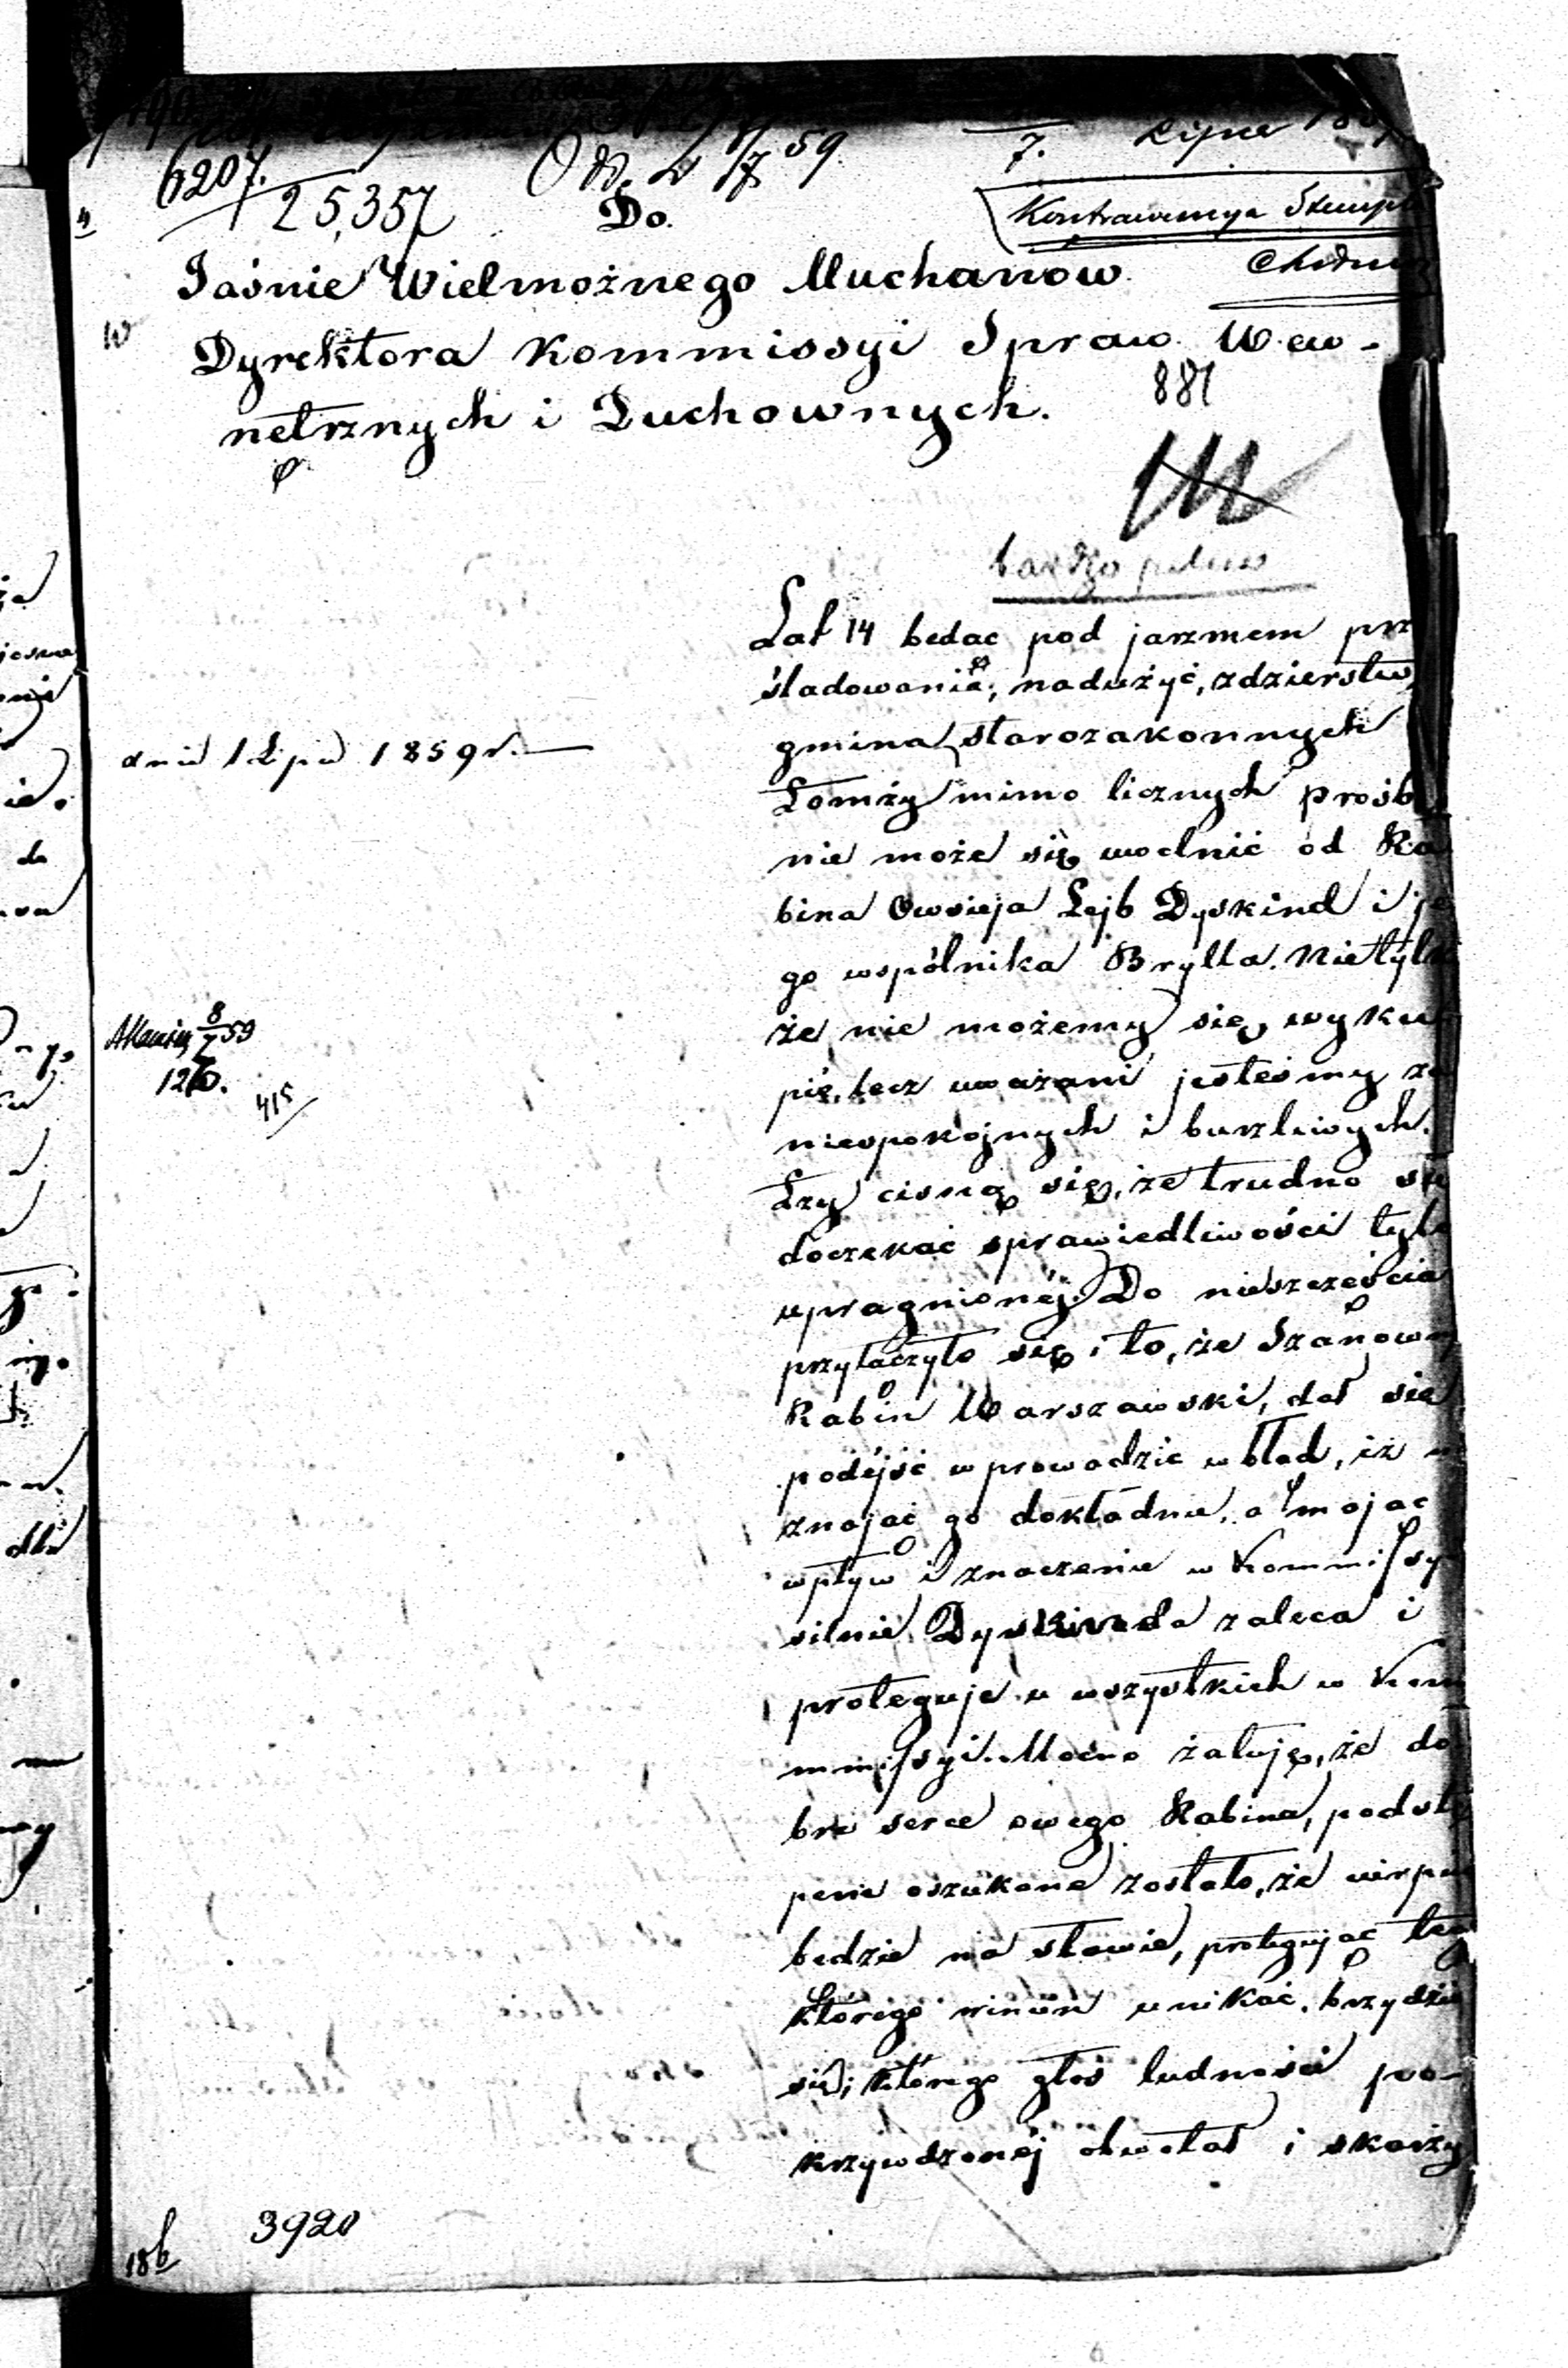 6207.
25,357
7. Lipca
Do.
Kontrawencya Stempl
Jaśnie Wielmożnego Muchanow
Dyrektora Kommissyi Spraw Wew-
netrznych i Duchownych.
881
bardzo pilno
Lat 14 bedac pod jarzmem prz
śladowania, nadużyć, zdzierstw,
gmina starozakonnych
dnia 1 Lipca 1859 r.
Łomży mimo licznych prośb
nie może się uwolnić od Ra
bina Owsieja Lejb Dyskind i je
go wspólnika Brylla. Nietylk
że nie możemy się wyku
8/7 59
126.
415
pić, lecz uważani jesteśmy za
niespokojnych i burzliwych.
Łzy cisną się, że trudno się
doczekać sprawiedliwości tyle
upragnionéj. Do nieszczęścia
przyłączyło się i to, że Szanown
Rabin Warszawski, dał się
podéjść wprowadzic w bład, iż n
znając go dokładnie, a mając
wpływ i znaczenie w Kommissy
silnie Dyskinda zaleca i
proteguje u wszystkich w Kom
mmissyi. Mocno żałuję, że do
bre serce owego Rabina, podstę
pnie oszukane zostało, że cierpie
bedzie na sławie, protegując teg
którego winien unikać, brzydzić
się, którego głos ludności po-
krzywdzonéj odwołał i skarży
3920
186